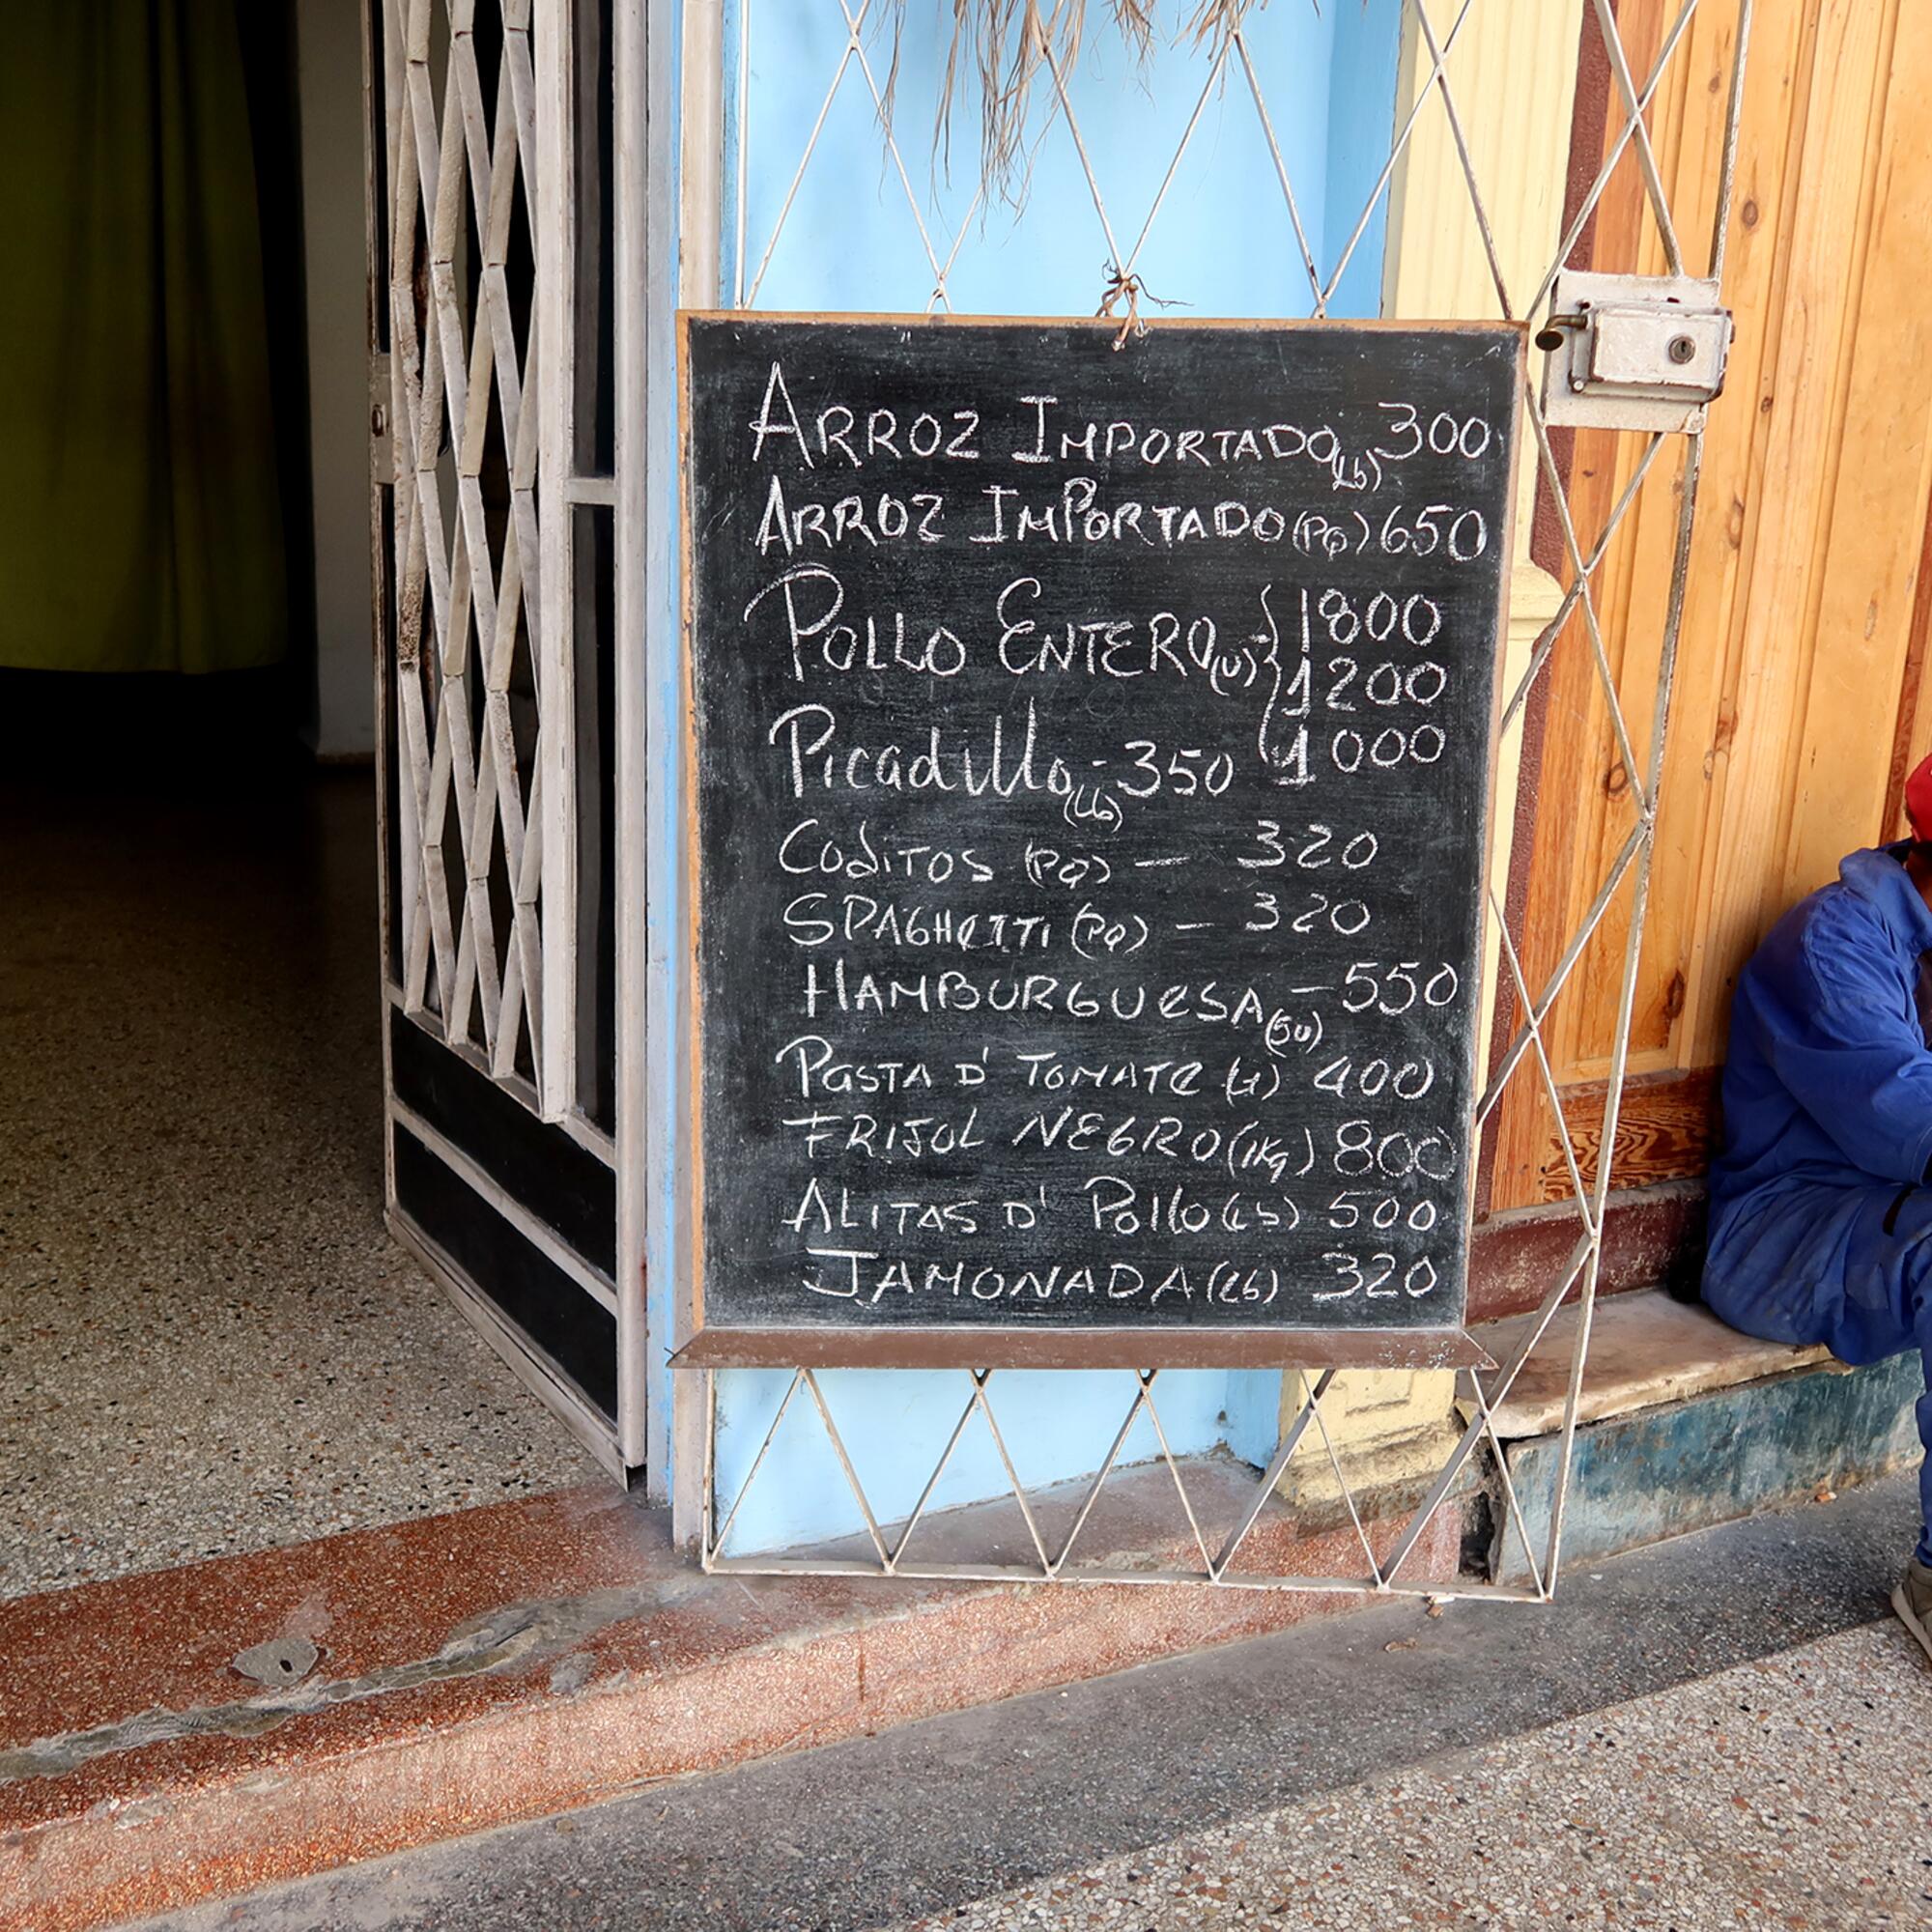 ARROZ IMPORTADO (Lb) 300
ARROZ IMPORTADO (PQ) 650
POLLO ENTERO (U) - { 1800
1200
1000
Picadillo (Lb) - 350
CODITOS (PQ) — 320
SPAGHETTI (PQ) — 320
HAMBURGUESA (5U) - 550
PASTA D' TOMATE 400
FRIJOL NEGRO (1Kg) 800
ALITAS D' POllO (Lb) 500
JAMONADA (Lb) 320